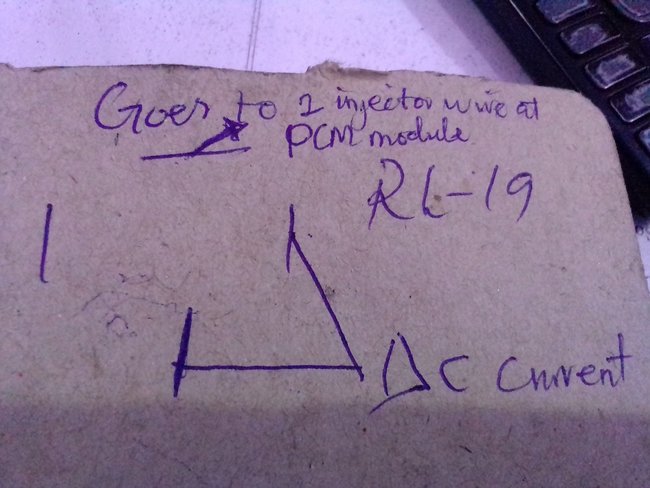 Goes to 1 injector wire at
PCM module
RL-19
DC Current